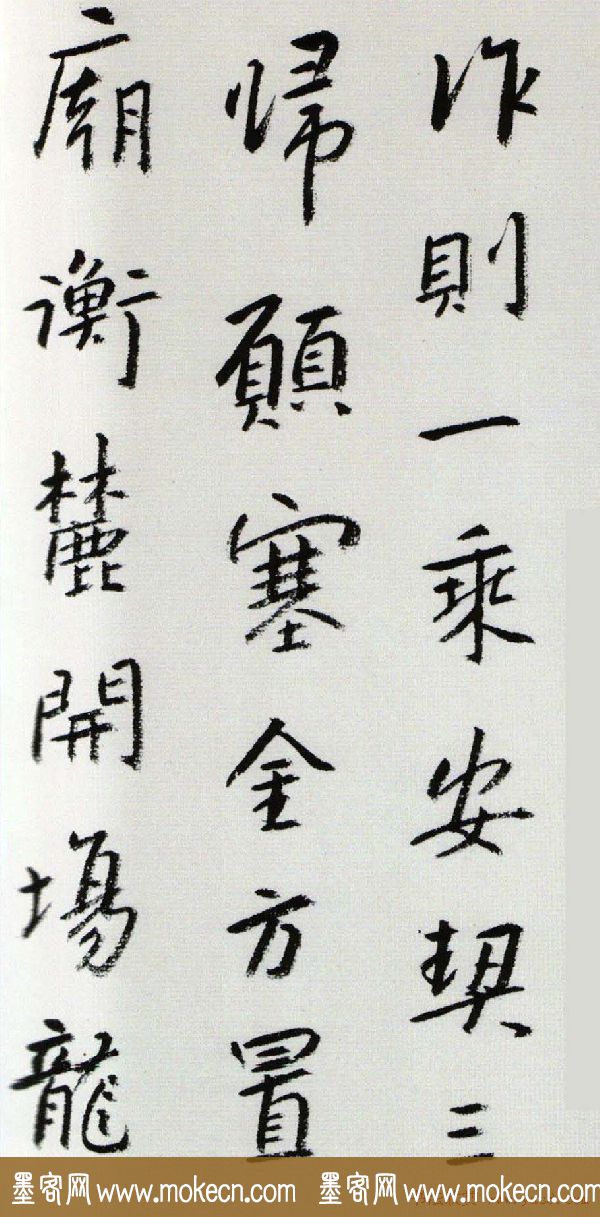 作則一乘安契三
帰願塞全方置
廟衡麓開場龍
墨客网 www.mokecn.com 墨客网 www.mokecn.com